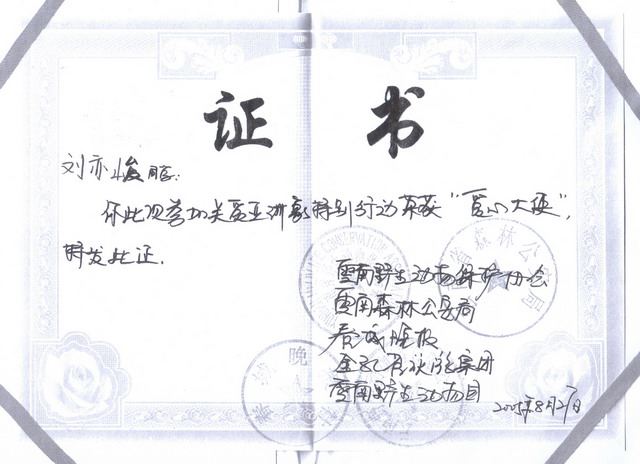 证 书
刘亦峻同志:
你此观参加关爱亚洲象特别行动荣获"爱心大使",
特发此证.
云南野生动物保护协会
云南森林公安局
春城晚报
集团
云南野生动物园
2005年8月27日
CONSERVATION
省森林公安局
晚